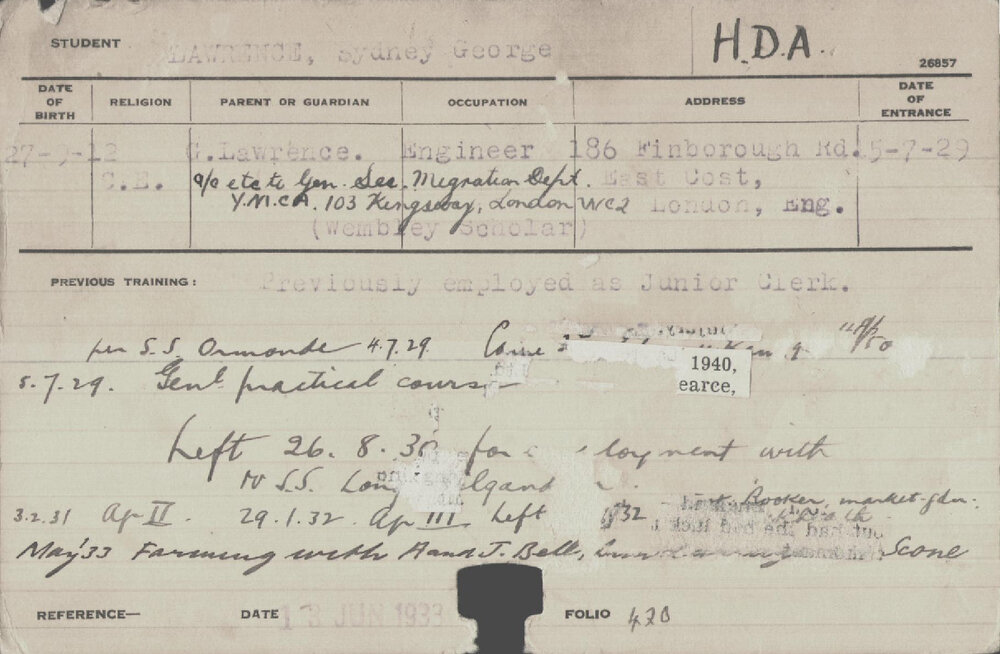 STUDENT LAWRENCE, Sydney George H.D.A. 26857
DATE OF BIRTH RELIGION PARENT OR GUARDIAN OCCUPATION ADDRESS DATE OF ENTRANCE
27-9-12 G.Lawrence. Engineer 186 Finborough Rd. 5-7-29
C.E. a/c etc to Gen. Sec. Migration Dept. East Cost,
Y.M.C.A. 103 Kingsway, London WC2 London, Eng.
(Wembley Scholar)
PREVIOUS TRAINING: Previously employed as Junior Clerk.
per S.S. Ormonde 4.7.29. Came
1940,
5.7.29. Genl practical course
earce,
Left 26. 8. 30 for loyment with
Mr S.S.
3.2.31 Ap II. 29.1.32. Ap III Left 32 Booker, market gdnr.
but had the bad luck
May '33 Farming with A and J. Bell, Scone
REFERENCE— DATE 13 JUN 1933 FOLIO 420